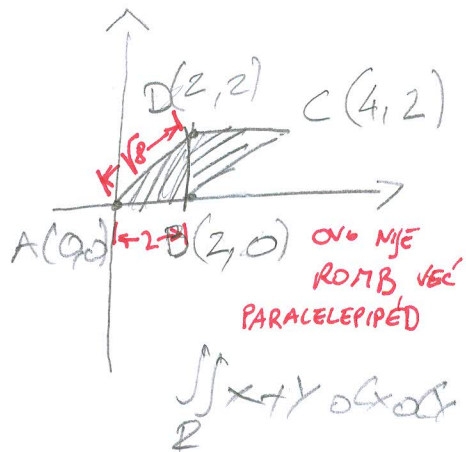 D(2,2)
C(4,2)
√8
A(0,0)
2
B(2,0)
OVO NIJE
ROMB VEĆ
PARALELEPIPÉD
∬ x+y dx dy